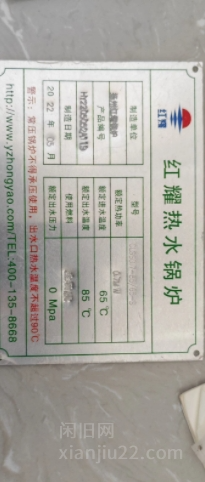 红耀
红耀热水锅炉
型号
额定热功率 0.7MW
额定进水温度 65℃
额定出水温度 85℃
使用燃料
额定出水压力 0 Mpa
制造单位
产品编号
制造日期 2022年05月
警示：常压锅炉不得承压使用，出水口热水温度不超过90℃
http://www.yzhongyao.com/TEL:400-135-8668
闲旧网
xianjiu22.com